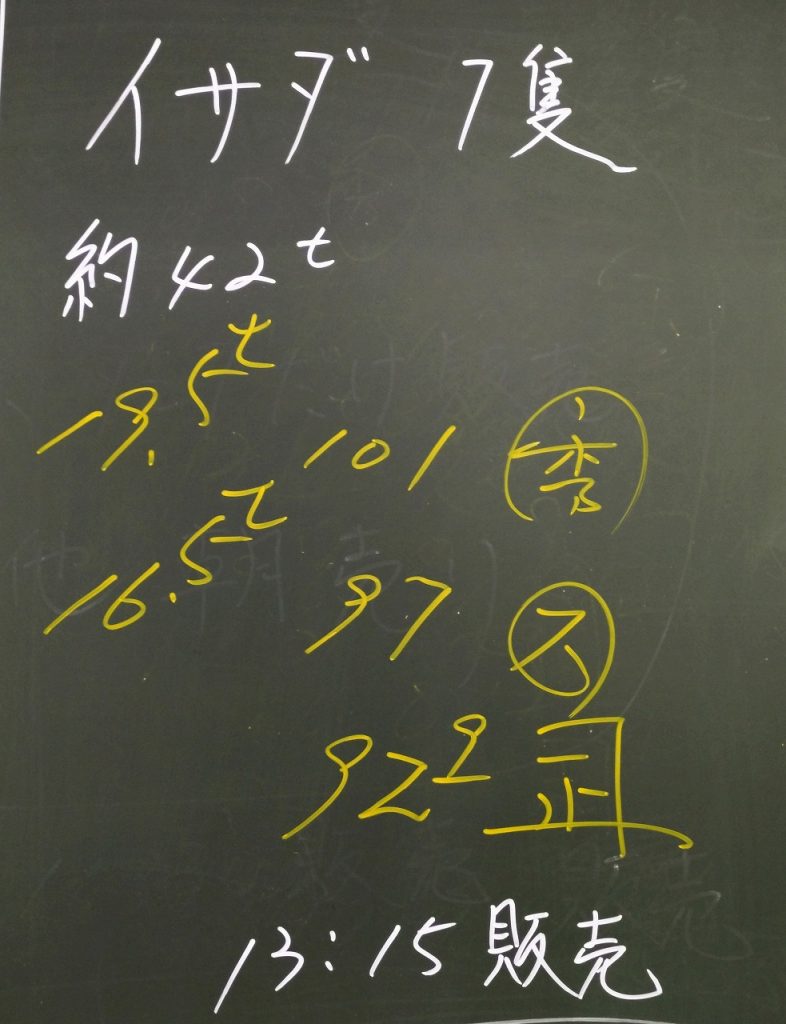 イサダ 7隻
約42t
19.5t 101 秀
16.5t 97 ス
92
13:15 販売